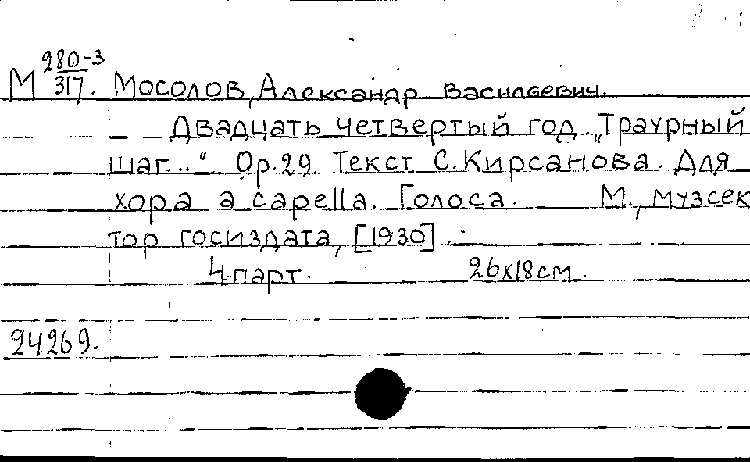 М 280-3/317. Мосолов, Александр Васильевич.
Двадцать четвертый год „Траурный
шаг..“ Ор.29. Текст С.Кирсанова. Для
хора a capella. Голоса. М., музсек
тор госиздата, [1930].
4 парт. 26х18см.
24269.